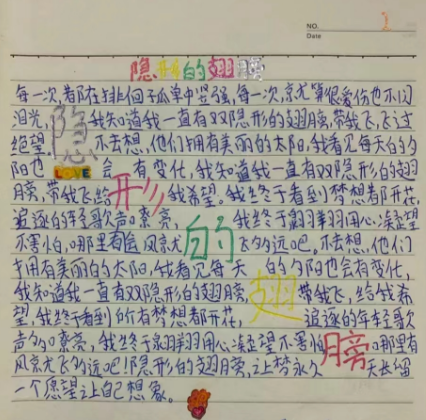 NO.
Date
1
隐形的翅膀
每一次,都在徘徊孤单中坚强,每一次,就算很受伤也不闪
泪光,隐我知道我一直有双隐形的翅膀,带我飞,飞过
绝望 不去想,他们拥有美丽的太阳,我看见每天的夕
阳也LOVE会 有变化,我知道我一直有双隐形的翅
膀,带我飞,给形我希望。我终于看到梦想都开花,
追逐的年轻歌声多嘹亮, 我终于翱翔用心凝望
不害怕,哪里有会风就的飞多远吧。不去想,他们
拥有美丽的太阳,我看见每天 的夕阳也会有变化,
我知道我一直有双隐形的翅膀翅带我飞,给我希
望,我终于看到所有梦想都开花, 追逐的年轻歌
声多嘹亮,我终于翱翔用心凝望不害怕膀哪里有
风就飞多远吧!隐形的翅膀,让梦永久 天长留
一个愿望让自己想象。